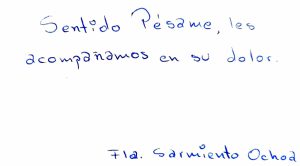 Sentido Pésame, les
acompañamos en su dolor.
Fla. Sarmiento Ochoa